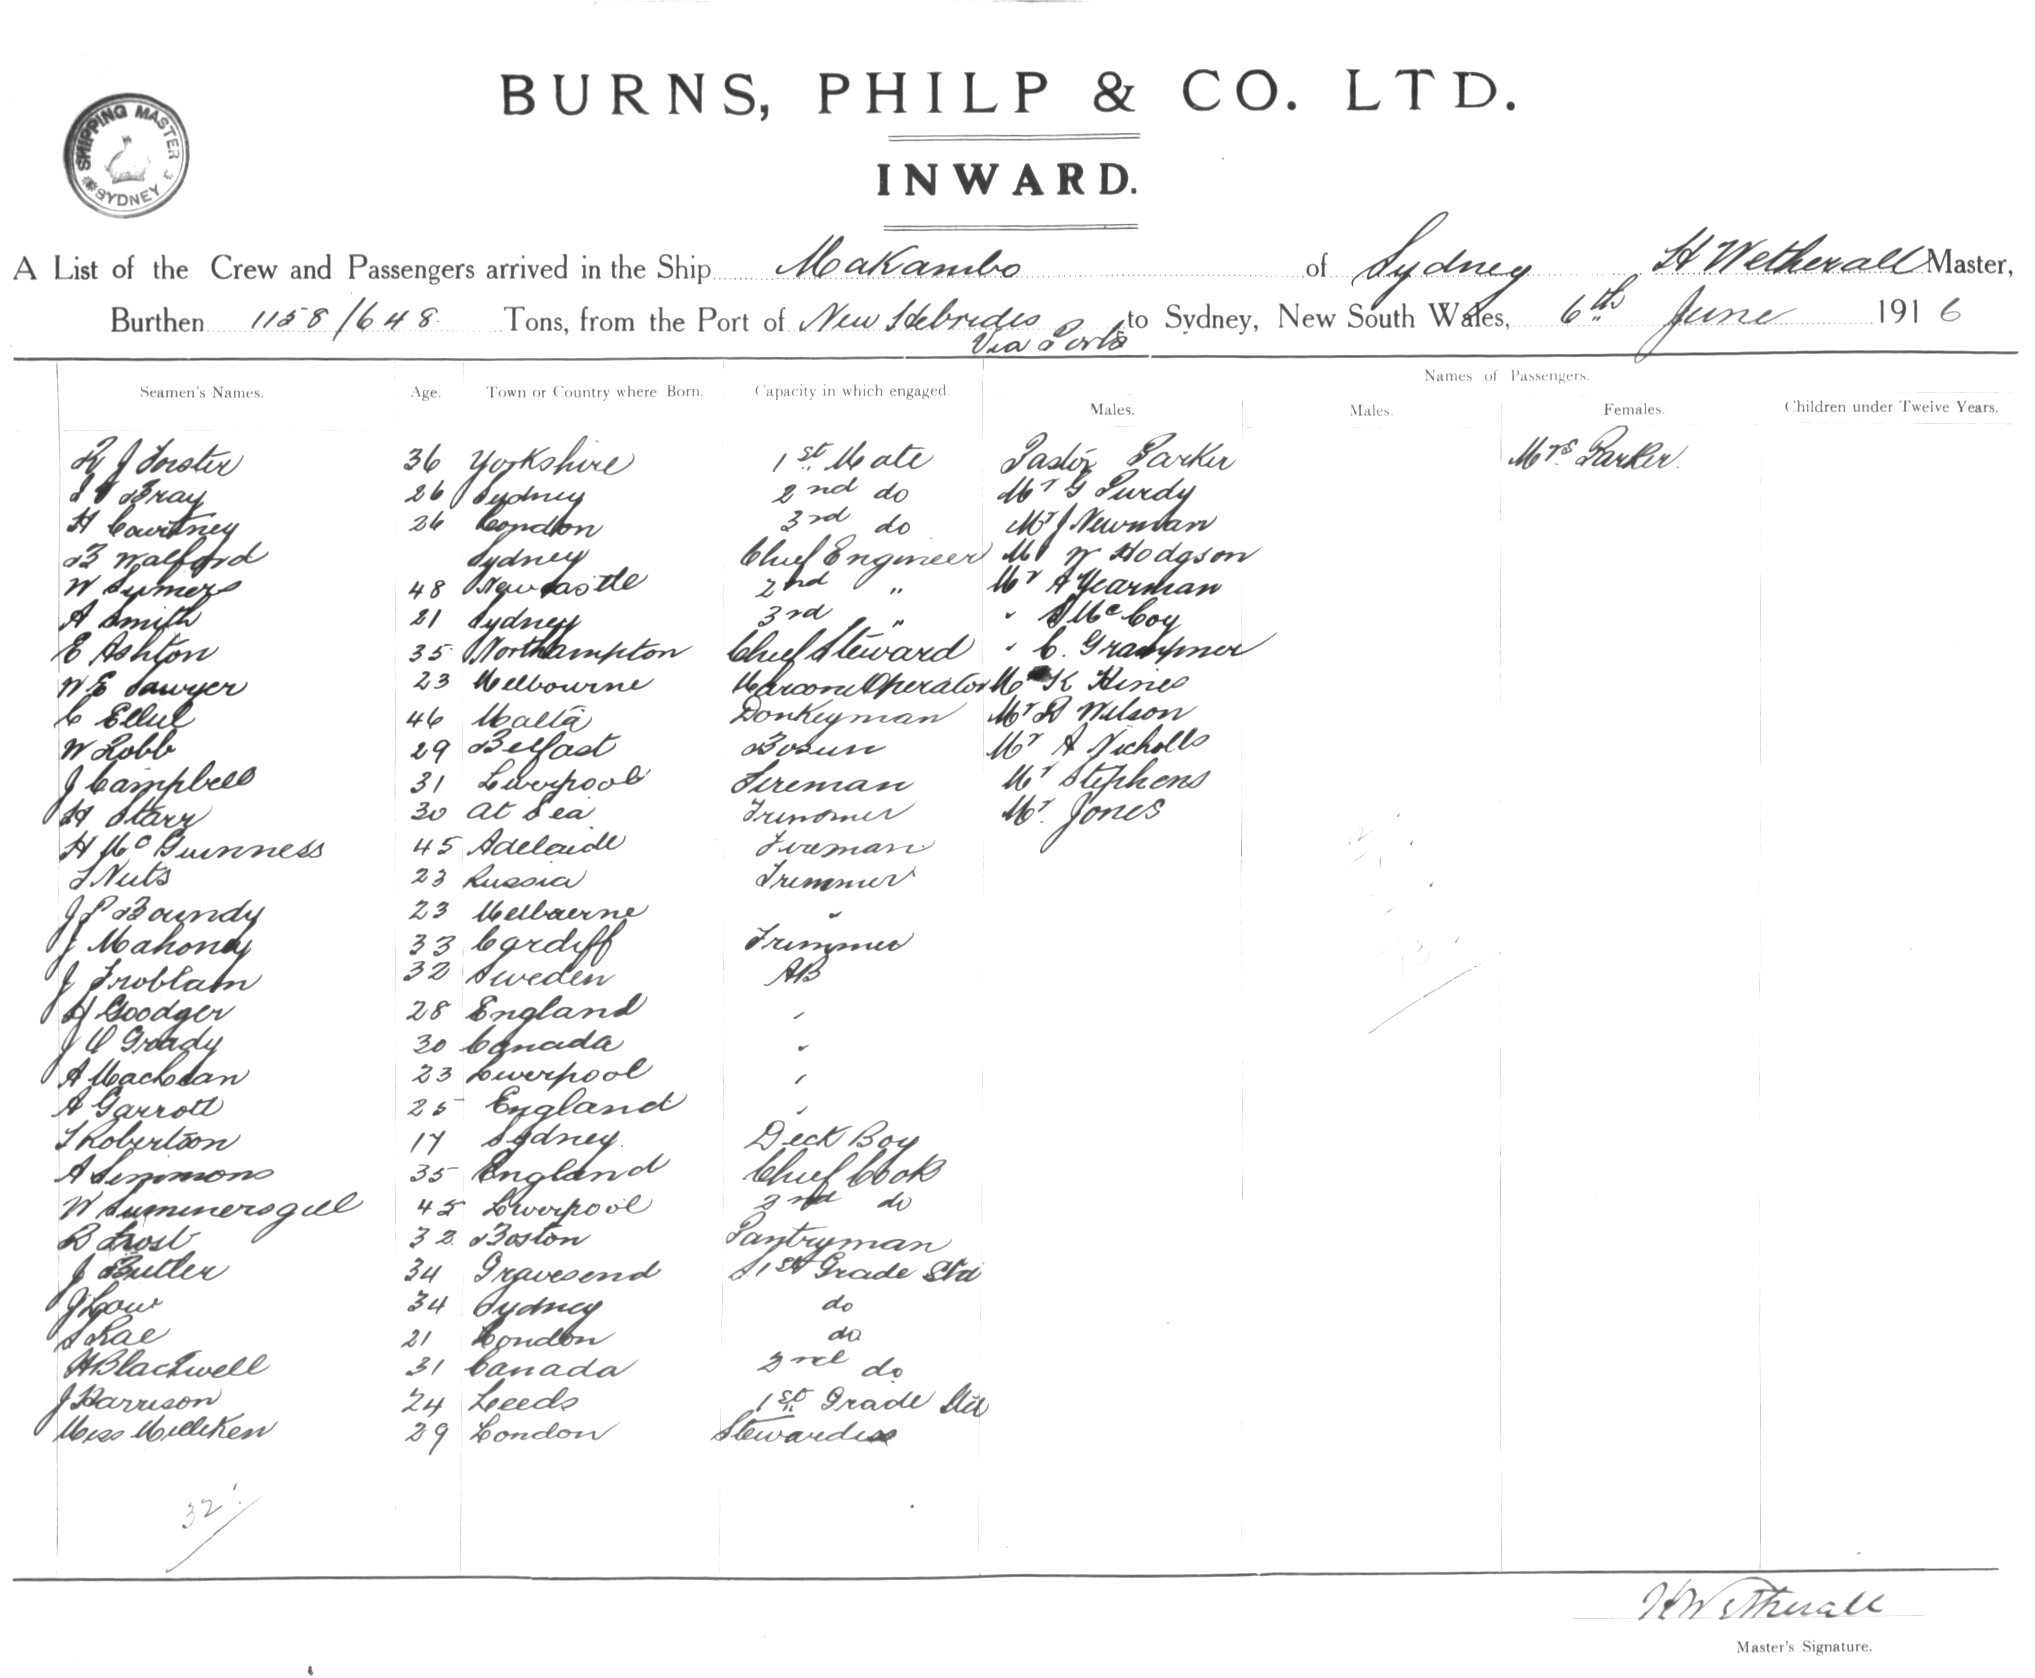 BURNS, PHILP & CO. LTD.
INWARD.
SHIPPING MASTER SYDNEY
A List of the Crew and Passengers arrived in the Ship Makambo of Sydney H Wetherall Master,
Burthen 1158/648 Tons, from the Port of New Hebrides to Sydney, New South Wales, 6th June 1916
Via Ports
Names of Passengers.
Seamen's Names. Age. Town or Country where Born. Capacity in which engaged. Males. Males. Females. Children under Twelve Years.
J Forster 36 Yorkshire 1st Mate Pastor Parker Mrs Parker.
Bray 26 Sydney 2nd do Mr G Purdy
H Courtney 26 London 3rd do Mr J Newman
B Walford Sydney Chief Engineer Mr W Hodgson
W Symers 48 Newcastle 2nd " Mr A Yearman
A Smith 21 Sydney 3rd " " S McCoy
E Ashton 35 Northampton Chief Steward " C. Grampner
W E Sawyer 23 Melbourne Marconi Operator Mr K Hines
C Ellul 46 Malta Donkeyman Mr R Wilson
W Robb 29 Belfast Bosun Mr A Nicholls
J Campbell 31 Liverpool Fireman Mr Stephens
H Starr 30 At Sea Trimmer Mr. Jones
H McGuinness 45 Adelaide Fireman
Nuts 23 Russia Trimmer
J P Boundy 23 Melbourne "
J Mahoney 33 Cardiff Trimmer
J Froblam 32 Sweden AB
H Goodger 28 England "
J O Grady 30 Canada "
A MacLean 23 Liverpool "
A Garrott 25 England "
Robertson 17 Sydney. Deck Boy
A Simmons 35 England Chief Cook
W Summersgill 45 Liverpool 2nd do
B Frost 32 Boston Pantryman
J Butler 34 Gravesend 1st Grade Std
J Low 34 Sydney do
S Rae 21 London do
H Blackwell 31 Canada 2nd do
J Harrison 24 Leeds 1st Grade Std
Miss Milliken 29 London Stewardess
32
H Wetherall
Master's Signature.